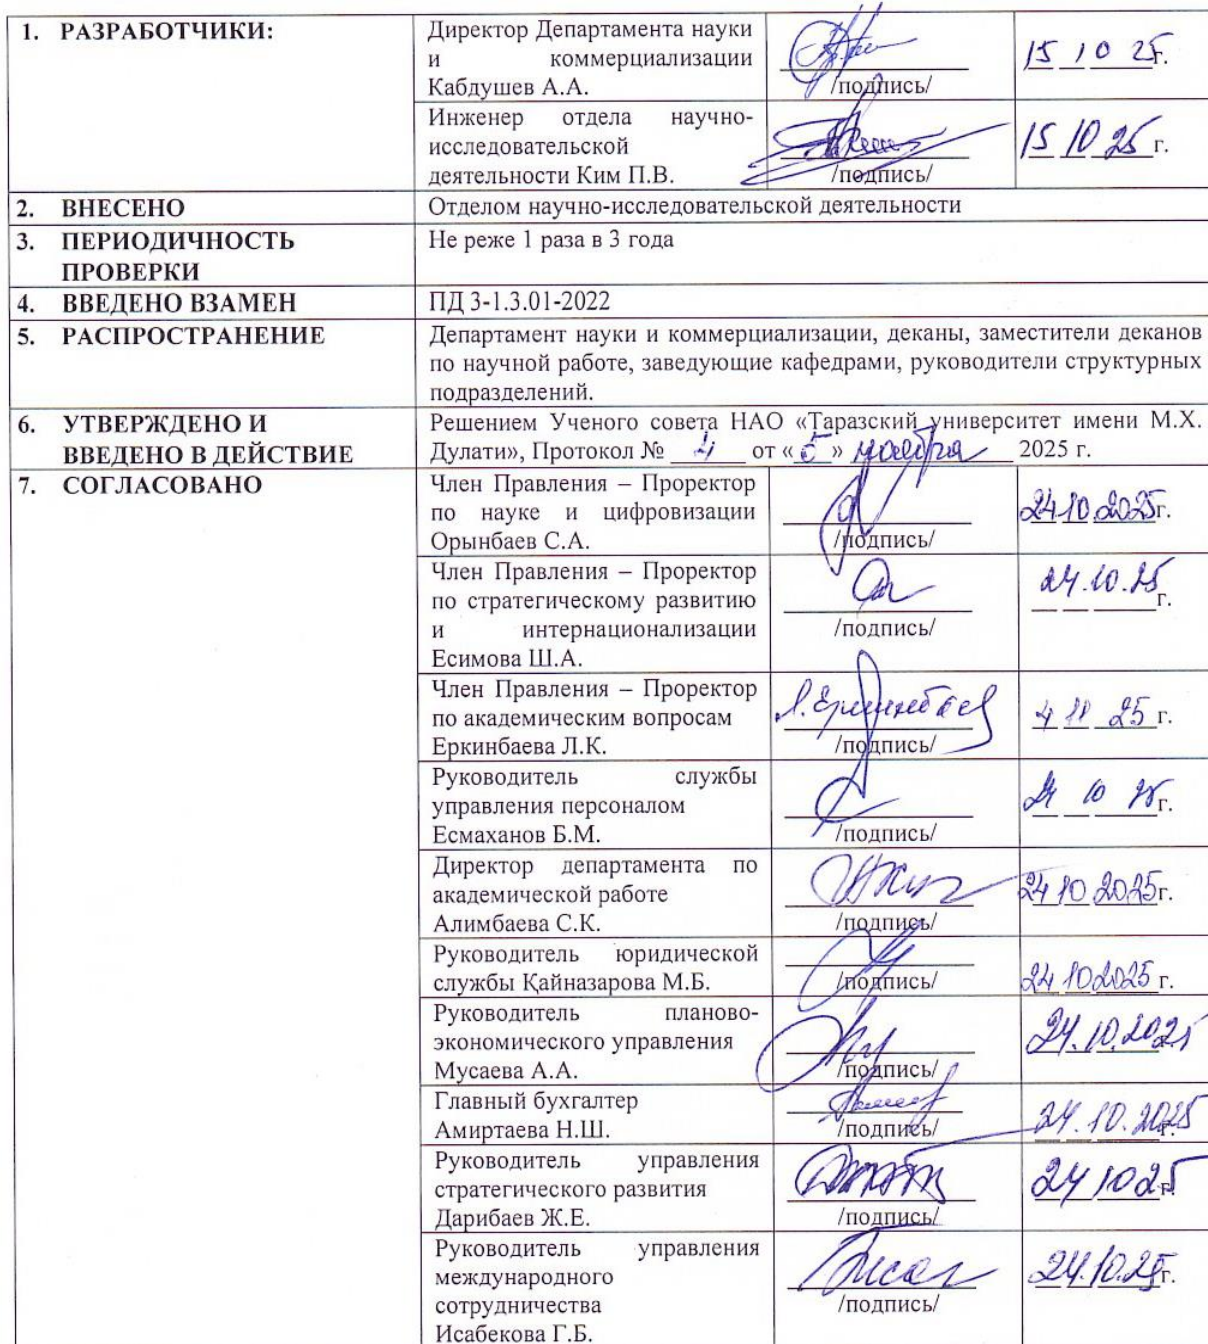 1. РАЗРАБОТЧИКИ:
Директор Департамента науки
и коммерциализации
Кабдушев А.А.
/подпись/
15 10 25г.
Инженер отдела научно-
исследовательской
деятельности Ким П.В.
/подпись/
15 10 25 г.
2. ВНЕСЕНО
Отделом научно-исследовательской деятельности
3. ПЕРИОДИЧНОСТЬ
ПРОВЕРКИ
Не реже 1 раза в 3 года
4. ВВЕДЕНО ВЗАМЕН
ПД 3-1.3.01-2022
5. РАСПРОСТРАНЕНИЕ
Департамент науки и коммерциализации, деканы, заместители деканов
по научной работе, заведующие кафедрами, руководители структурных
подразделений.
6. УТВЕРЖДЕНО И
ВВЕДЕНО В ДЕЙСТВИЕ
Решением Ученого совета НАО «Таразский университет имени М.Х.
Дулати», Протокол № 4 от «5» ноября 2025 г.
7. СОГЛАСОВАНО
Член Правления – Проректор
по науке и цифровизации
Орынбаев С.А.
/подпись/
24.10.2025г.
Член Правления – Проректор
по стратегическому развитию
и интернационализации
Есимова Ш.А.
/подпись/
24.10.25 г.
Член Правления – Проректор
по академическим вопросам
Еркинбаева Л.К.
/подпись/
4 11 25 г.
Руководитель службы
управления персоналом
Есмаханов Б.М.
/подпись/
24 10 25г.
Директор департамента по
академической работе
Алимбаева С.К.
/подпись/
24 10 2025г.
Руководитель юридической
службы Қайназарова М.Б.
/подпись/
24 10 2025 г.
Руководитель планово-
экономического управления
Мусаева А.А.
/подпись/
24.10.2025
Главный бухгалтер
Амиртаева Н.Ш.
/подпись/
24.10.2025г.
Руководитель управления
стратегического развития
Дарибаев Ж.Е.
/подпись/
24 10 25г.
Руководитель управления
международного
сотрудничества
Исабекова Г.Б.
/подпись/
24.10.25г.